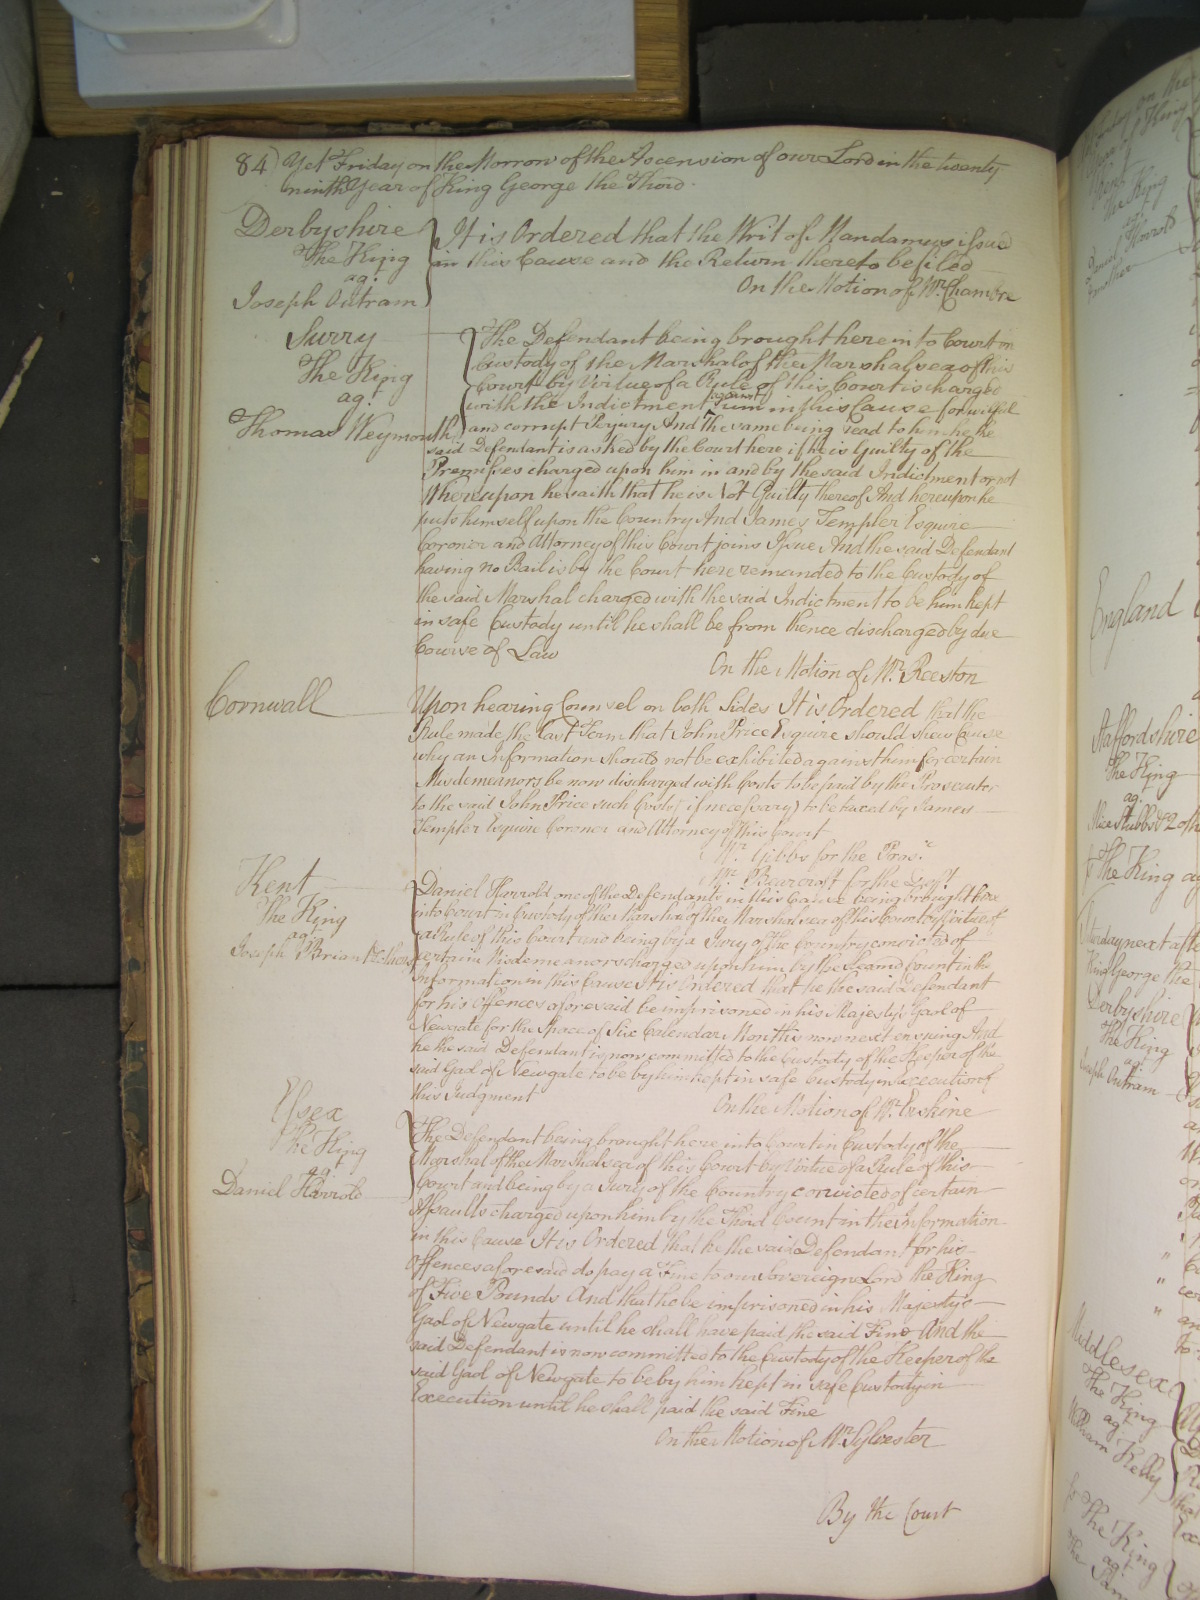 84) Yet Friday on the Morrow of the Ascension of our Lord in the twenty
ninth Year of King George the Third.
Derbyshire
The King
agt
Joseph Outram
It is Ordered that the Writ of Mandamus issued
in this Cause and the Return thereto be filed
On the Motion of Mr. Chambre
Surry
The King
agt
Thomas Weymouth
The Defendant being brought here into Court in
Custody of the Marshal of the Marshalsea of this
Court by Virtue of a Rule of this Court is charged
with the Indictment against him in this Cause for wilful
and corrupt Perjury And the same being read to him he the
said Defendant is asked by the Court here if he is Guilty of the
Premises charged upon him in and by the said Indictment or not
Whereupon he saith that he is Not Guilty thereof And hereupon he
puts himself upon the Country And James Templer Esquire
Coroner and Attorney of this Court joins Issue And the said Defendant
having no Bail is by the Court here remanded to the Custody of
the said Marshal charged with the said Indictment to be him kept
in safe Custody until he shall be from thence discharged by due
Course of Law
On the Motion of Mr.
Cornwall
Upon hearing Counsel on both Sides It is Ordered that the
Rule made the last Term that John Price Esquire should shew Cause
why an Information should not be exhibited against him for certain
Misdemeanors be now discharged with Costs to be paid by the Prosecutor
to the said John Price such Costs (if necessary) to be taxed by James
Templer Esquire Coroner and Attorney of this Court
Mr. Gibbs for the Prosr.
Mr. Bearcroft for the Deft
Kent
The King
agt
Joseph Brian & others
Daniel Harrold one of the Defendants in this Cause being brought here
into Court in Custody of the Marshal of the Marshalsea of this Court by Virtue of
a Rule of this Court and being by a Jury of the Country convicted of
certain Misdemeanors charged upon him by the Second Count in the
Information in this Cause It is Ordered that he the said Defendant
for his Offences aforesaid be imprisoned in his Majesty's Gaol of
Newgate for the Space of Six Calendar Months now next ensuing And
he the said Defendant is now committed to the Custody of the Keeper of the
said Gaol of Newgate to be by him kept in safe Custody in Execution of
this Judgment
On the Motion of Mr. Erskine
Essex
The King
agt
Daniel Harrold
The Defendant being brought here into Court in Custody of the
Marshal of the Marshalsea of this Court by Virtue of a Rule of this
Court and being by a Jury of the Country convicted of certain
Assaults charged upon him by the Third Count in the Information
in this Cause It is Ordered that he the said Defendant for his
Offences aforesaid do pay a Fine to our Sovereign Lord the King
of Five Pounds And that he be imprisoned in his Majesty's
Gaol of Newgate until he shall have paid the said Fine And the
said Defendant is now committed to the Custody of the Keeper of the
said Gaol of Newgate to be by him kept in safe Custody in
Execution until he shall paid the said Fine
On the Motion of Mr. Sylvester
By the Court
England
Staffordshire
The King
agt
Alice Stubbs & 2 oth
The King ag
King George the
Derbyshire
The King
agt
Joseph Outram
Middlesex
The King
agt
William Kelly
The King
agt